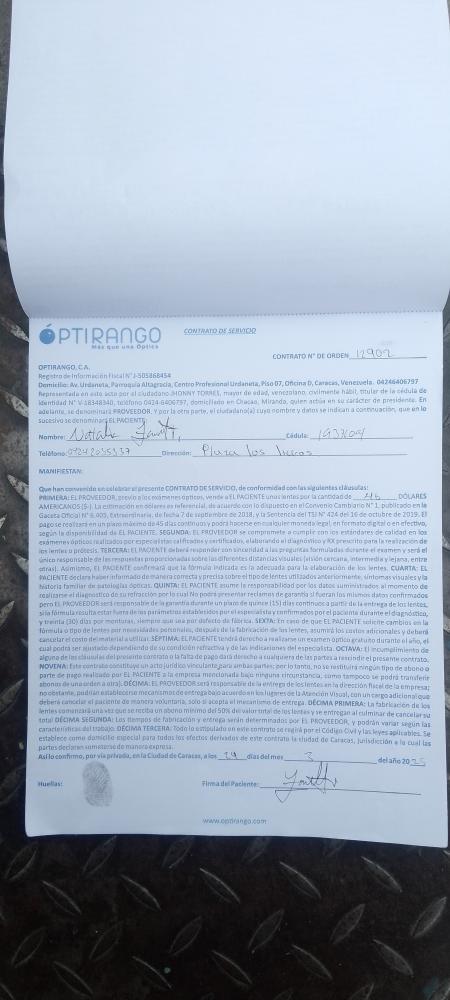 ÓPTIRANGO
Más que una Óptica
CONTRATO DE SERVICIO
CONTRATO N° DE ORDEN 12902
OPTIRANGO, C.A.
Registro de Información Fiscal N° J-505868454
Domicilio: Av. Urdaneta, Parroquia Altagracia, Centro Profesional Urdaneta, Piso 07, Oficina D, Caracas, Venezuela. 04246406797
Representada en este acto por el ciudadano JHONNY TORRES, mayor de edad, venezolano, civilmente hábil, titular de la cédula de
identidad N° V-18348340, teléfono 0424-6406797, domiciliado en Chacao, Miranda, quien actúa en su carácter de presidente. En
adelante, se denominará PROVEEDOR. Y por la otra parte, el ciudadano(a) cuyo nombre y datos se indican a continuación, que en lo
sucesivo se denominará EL PACIENTE:
Nombre: Cédula:
Teléfono: Dirección: Plaza los
MANIFIESTAN:
Que han convenido en celebrar el presente CONTRATO DE SERVICIO, de conformidad con las siguientes cláusulas:
PRIMERA: EL PROVEEDOR, previo a los exámenes ópticos, vende a EL PACIENTE unos lentes por la cantidad de 45 DÓLARES
AMERICANOS ($-). La estimación en dólares es referencial, de acuerdo con lo dispuesto en el Convenio Cambiario N° 1, publicado en la
Gaceta Oficial N° 6.405, Extraordinaria, de fecha 7 de septiembre de 2018, y la Sentencia del TSJ N° 424 del 16 de octubre de 2019. El
pago se realizará en un plazo máximo de 45 días continuos y podrá hacerse en cualquier moneda legal, en formato digital o en efectivo,
según la disponibilidad de EL PACIENTE. SEGUNDA: EL PROVEEDOR se compromete a cumplir con los estándares de calidad en los
exámenes ópticos realizados por especialistas calificados y certificados, elaborando el diagnóstico y RX prescrito para la realización de
los lentes o prótesis. TERCERA: EL PACIENTE deberá responder con sinceridad a las preguntas formuladas durante el examen y será el
único responsable de las respuestas proporcionadas sobre las diferentes distancias visuales (visión cercana, intermedia y lejana, entre
otras). Asimismo, EL PACIENTE confirmará que la fórmula indicada es la adecuada para la elaboración de los lentes. CUARTA: EL
PACIENTE declara haber informado de manera correcta y precisa sobre el tipo de lentes utilizados anteriormente, síntomas visuales y la
historia familiar de patologías ópticas. QUINTA: EL PACIENTE asume la responsabilidad por los datos suministrados al momento de
realizarse el diagnostico de su refracción por lo cual No podrá presentar reclamos de garantía si fueran los mismos datos confirmados
pero EL PROVEEDOR será responsable de la garantía durante un plazo de quince (15) días continuos a partir de la entrega de los lentes,
si la fórmula resulta estar fuera de los parámetros establecidos por el especialista y confirmados por el paciente durante el diagnóstico,
y treinta (30) días por monturas, siempre que sea por defecto de fábrica. SEXTA: En caso de que EL PACIENTE solicite cambios en la
fórmula o tipo de lentes por necesidades personales, después de la fabricación de los lentes, asumirá los costos adicionales y deberá
cancelar el costo del material a utilizar. SÉPTIMA: EL PACIENTE tendrá derecho a realizarse un examen óptico gratuito durante el año, el
cual podrá ser ajustado dependiendo de su condición refractiva y de las indicaciones del especialista. OCTAVA: El incumplimiento de
alguna de las cláusulas del presente contrato o la falta de pago dará derecho a cualquiera de las partes a rescindir el presente contrato.
NOVENA: Este contrato constituye un acto jurídico vinculante para ambas partes; por lo tanto, no se restituirá ningún tipo de abono o
parte de pago realizado por EL PACIENTE a la empresa mencionada bajo ninguna circunstancia, como tampoco se podrá transferir
abonos de una orden a otra). DÉCIMA: EL PROVEEDOR será responsable de la entrega de los lentes en la dirección fiscal de la empresa;
no obstante, podrían establecerse mecanismos de entrega bajo acuerdo en los lugares de la Atención Visual, con un cargo adicional que
deberá cancelar el paciente de manera voluntaria, solo si acepta el mecanismo de entrega. DÉCIMA PRIMERA: La fabricación de los
lentes comenzará una vez que se reciba un abono mínimo del 50% del valor total de los lentes y se entregan al culminar de cancelar su
total DÉCIMA SEGUNDA: Los tiempos de fabricación y entrega serán determinados por EL PROVEEDOR, y podrán variar según las
características del trabajo. DÉCIMA TERCERA: Todo lo estipulado en este contrato se regirá por el Código Civil y las leyes aplicables. Se
establece como domicilio especial para todos los efectos derivados de este contrato la ciudad de Caracas, jurisdicción a la cual las
partes declaran someterse de manera expresa.
Así lo confirmo, por vía privada, en la Ciudad de Caracas, a los 24 días del mes 3 del año 2025
Huellas: Firma del Paciente:
www.optirango.com